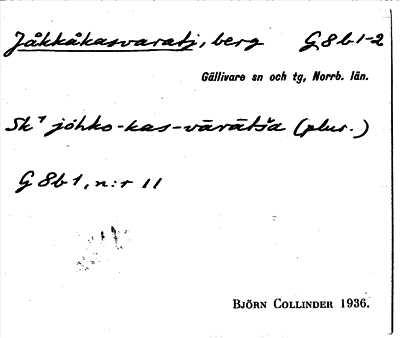 Jåkkåkasvaratj, berg G 8 b 1-2
Gällivare sn och tg, Norrb. län.
Sk⁷ jòhko-kas-vārātša (plur.)
G 8b 1, n:r 11
BJÖRN COLLINDER 1936.